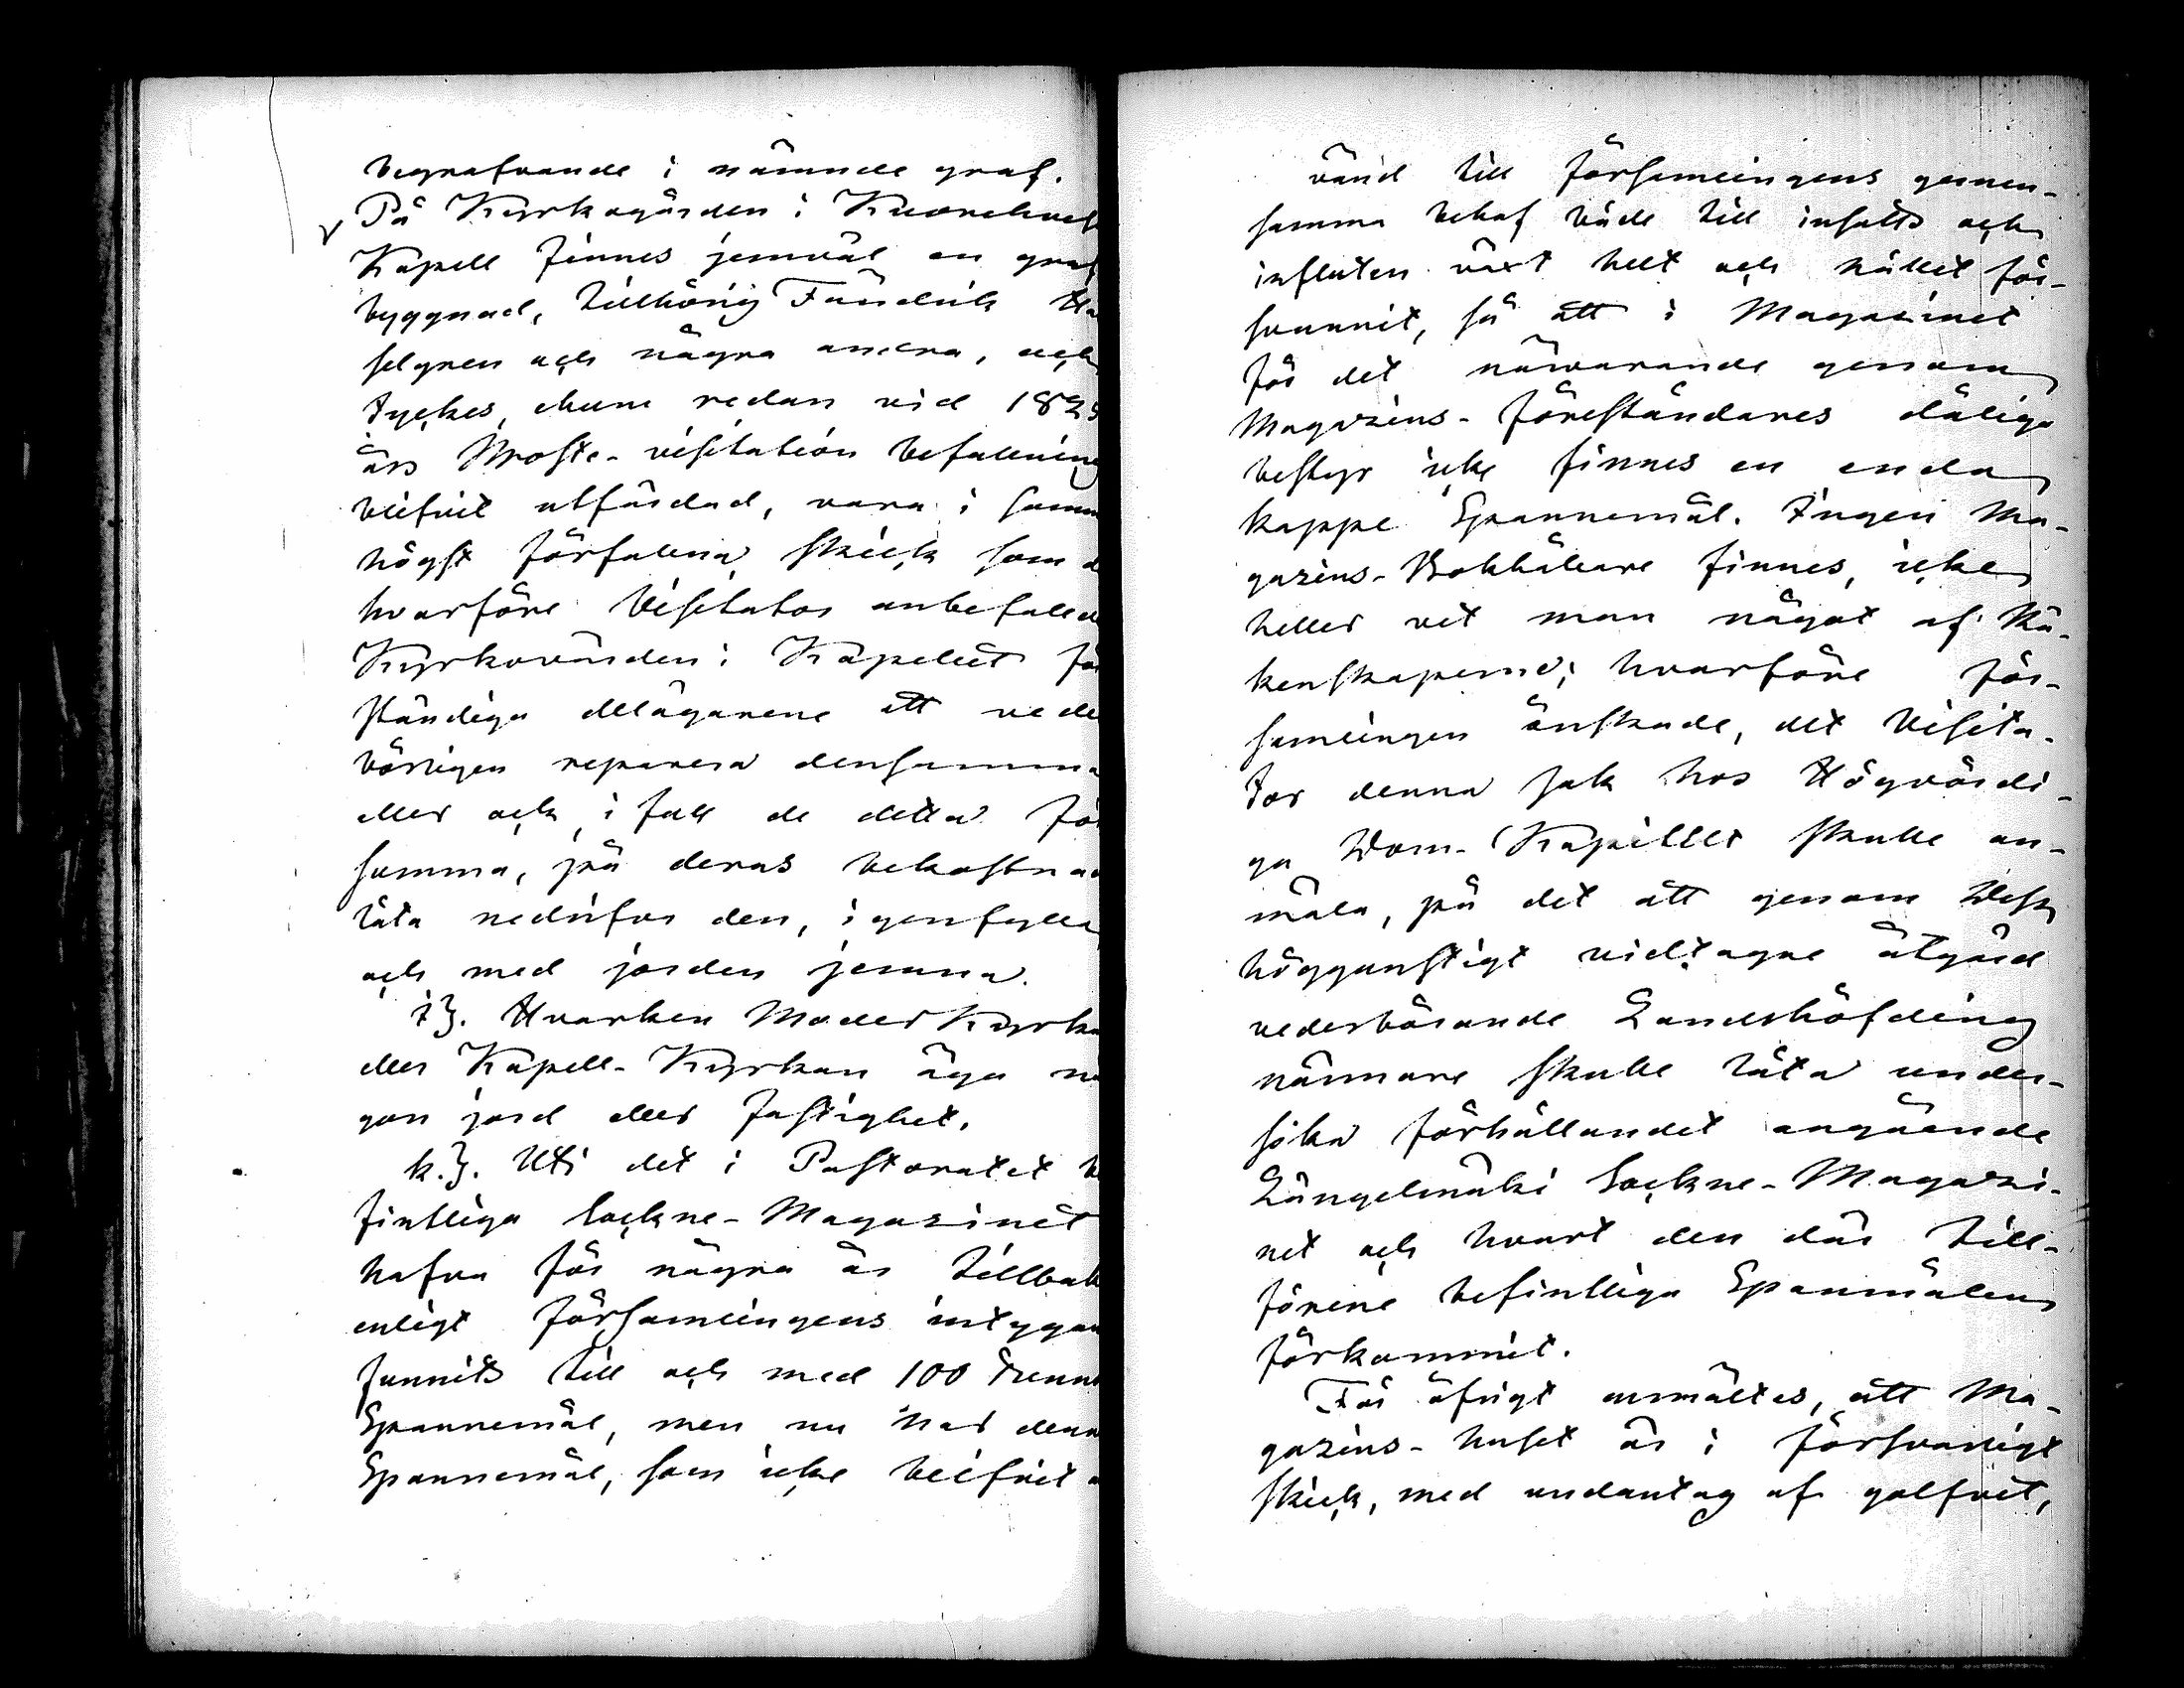 begrafvande i nämnde graf.
På Kyrkogården i Kuorehvesi
Kapell finnes jemväl en graf
byggnad, tillhörig Fändrik Ha
selgren och några andra, och
tyckes, ehuru redan vid 1829
års Proste-visitation befallning
blifvit utfärdad, vara i samm
högst förfallna skick som d
hvarföre Visitator anbefalld
Kyrkovärden i Kapellet för
ständiga delägarene att wede
börligen reparera densamma
eller ock, i fall de detta för
summa, på deras bekostnad
låta nedrifva den, igenfylla
och med jorden jemna.
i}. Hvarken Moder Kyrka
eller Kapell-Kyrkan äga nå
gon jord eller fastighet.
k.}. Uti det i Pastoratet be
fintliga Sockne-Magazinet
hafva för några år tillbak
enligt Församlingens intygan
funnits till och med 100 tunn
Spannemål, men nu har denn
Spannemål, som icke blifvit a
vänd till Församlingens gemen-
samma behof både till insatts och
influten växt helt och hållit för-
svunnit, så att i Magasinet
för det närvarande genom
Magazins-Föreståndares dåliga
bestyr icke finnes en enda
kappe Spannemål. Ingen Ma-
gazins-Bokhållare finnes, icke
heller vet man något af Rä-
kenskaperna; hvarföre För-
samlingen önskade, det Visita-
tor denna sak hos Högvördi-
ga Dom-Kapitlet skulle an-
mäla, på det att genom Dess
höggunstigt vidtagne åtgärd
vederbörande Landshöfding
närmare skulle låta under-
söka förhållandet angående
Längelmäki Sockne-Magazi-
net och hvart den där till-
förene befintliga Spanmålen
förkommit.
För öfrigt anmältes, att Ma-
gazins-huset är i försvarligt
skick, med undantag af golfvet,